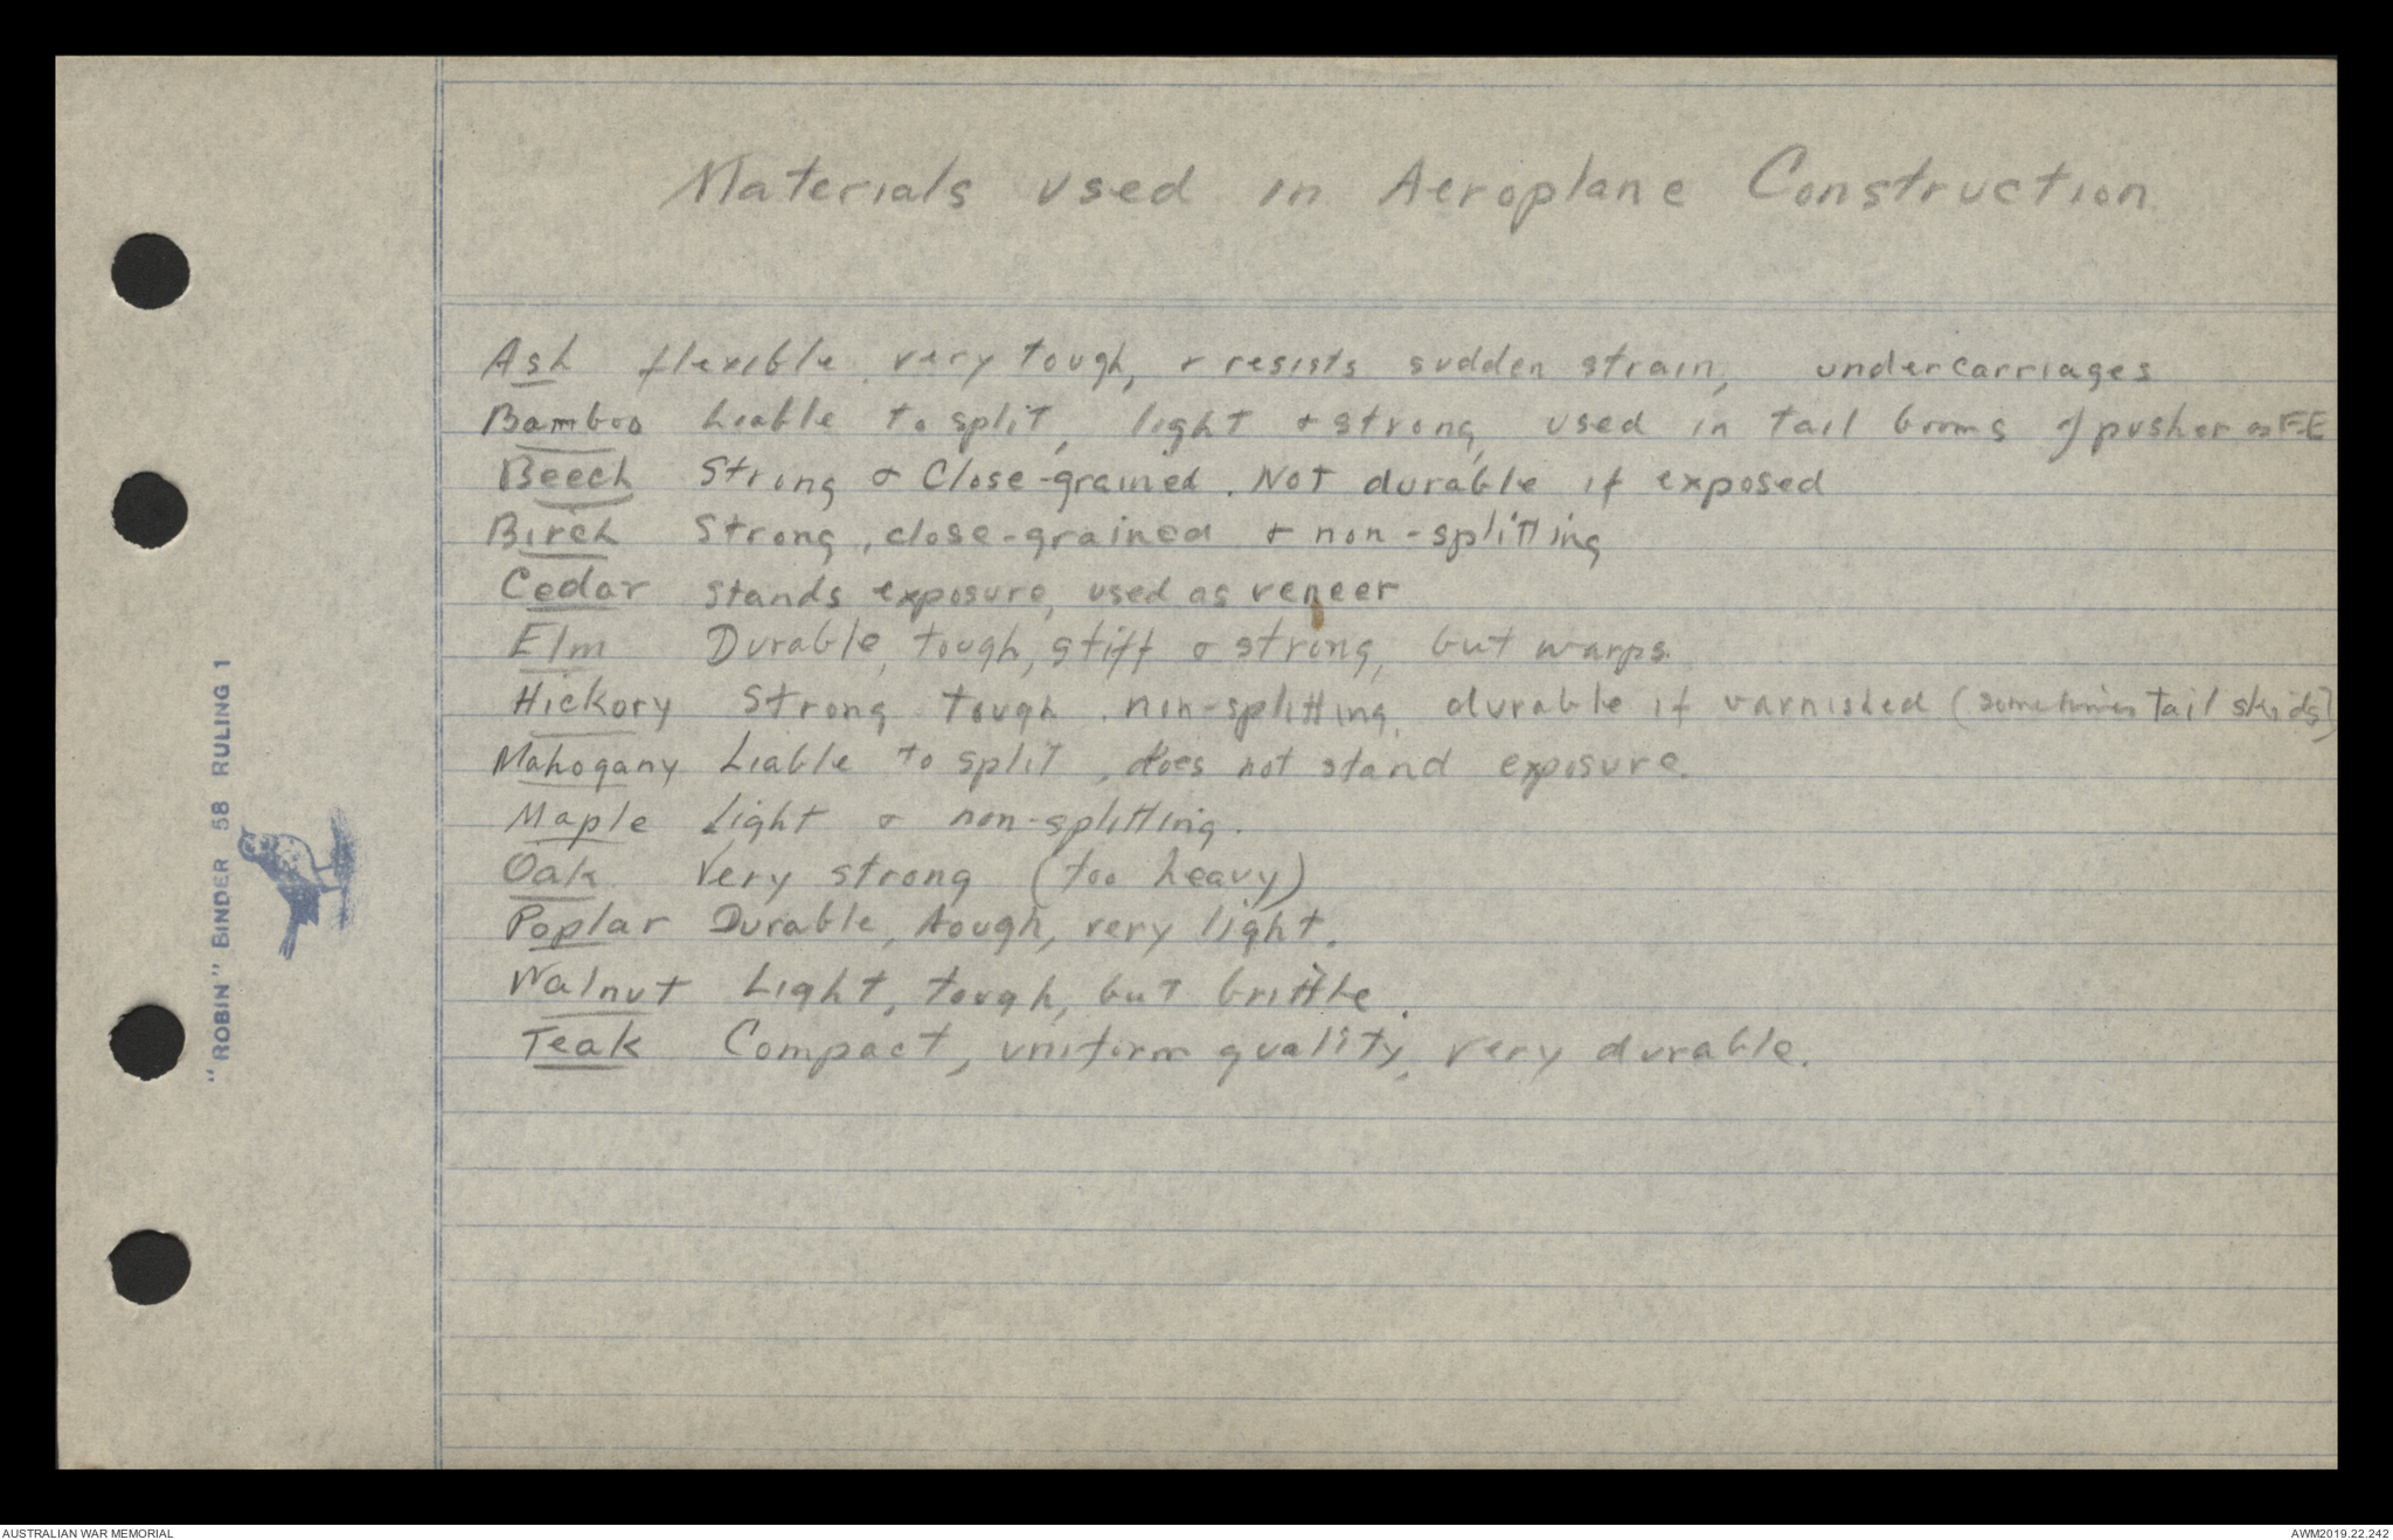 Materials used in Aeroplane Construction
Ash flexible, very tough, & resists sudden strain, undercarriages
Bamboo Liable to split, light & strong, used in tail booms of pusher as FE
Beech Strong & Close-grained. Not durable if exposed
Birch Strong, close-grained & non-splitting
Cedar stands exposure, used as veneer
Elm Durable, tough, stiff & strong, but warps.
Hickory Strong tough, non-splitting, durable if varnished (sometimes tail skids)
Mahogany Liable to split, does not stand exposure.
Maple Light & non-splitting.
Oak Very strong (too heavy)
Poplar Durable, tough, very light.
Walnut Light, tough, but brittle.
Teak Compact, uniform quality, very durable.
"ROBIN" BINDER 58 RULING 1
AUSTRALIAN WAR MEMORIAL
AWM2019.22.242